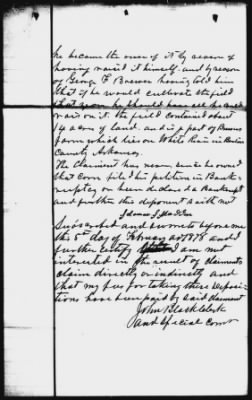 he became the owner of it by reason of
having raised it himself, and by reason
of George F. Brewer having told him
that if he would cultivate the field
that year he should have all he could
raise on it. the field contained about
14 acres of land, and is a part of
farm which lies on White River in
County Arkansas.
The Claimant has never since he owned
that corn filed his petition in Bank-
ruptcy or been declared a Bankrupt
and further this deponent saith not
Subscribed and sworn to before me
this 5th day of February AD 1878 and I
further certify I am not
interested in the result of claimants
claim directly or indirectly and
that my fees for taking these deposi-
tions have been paid by said claimant
John Black Clerk
and Special Com